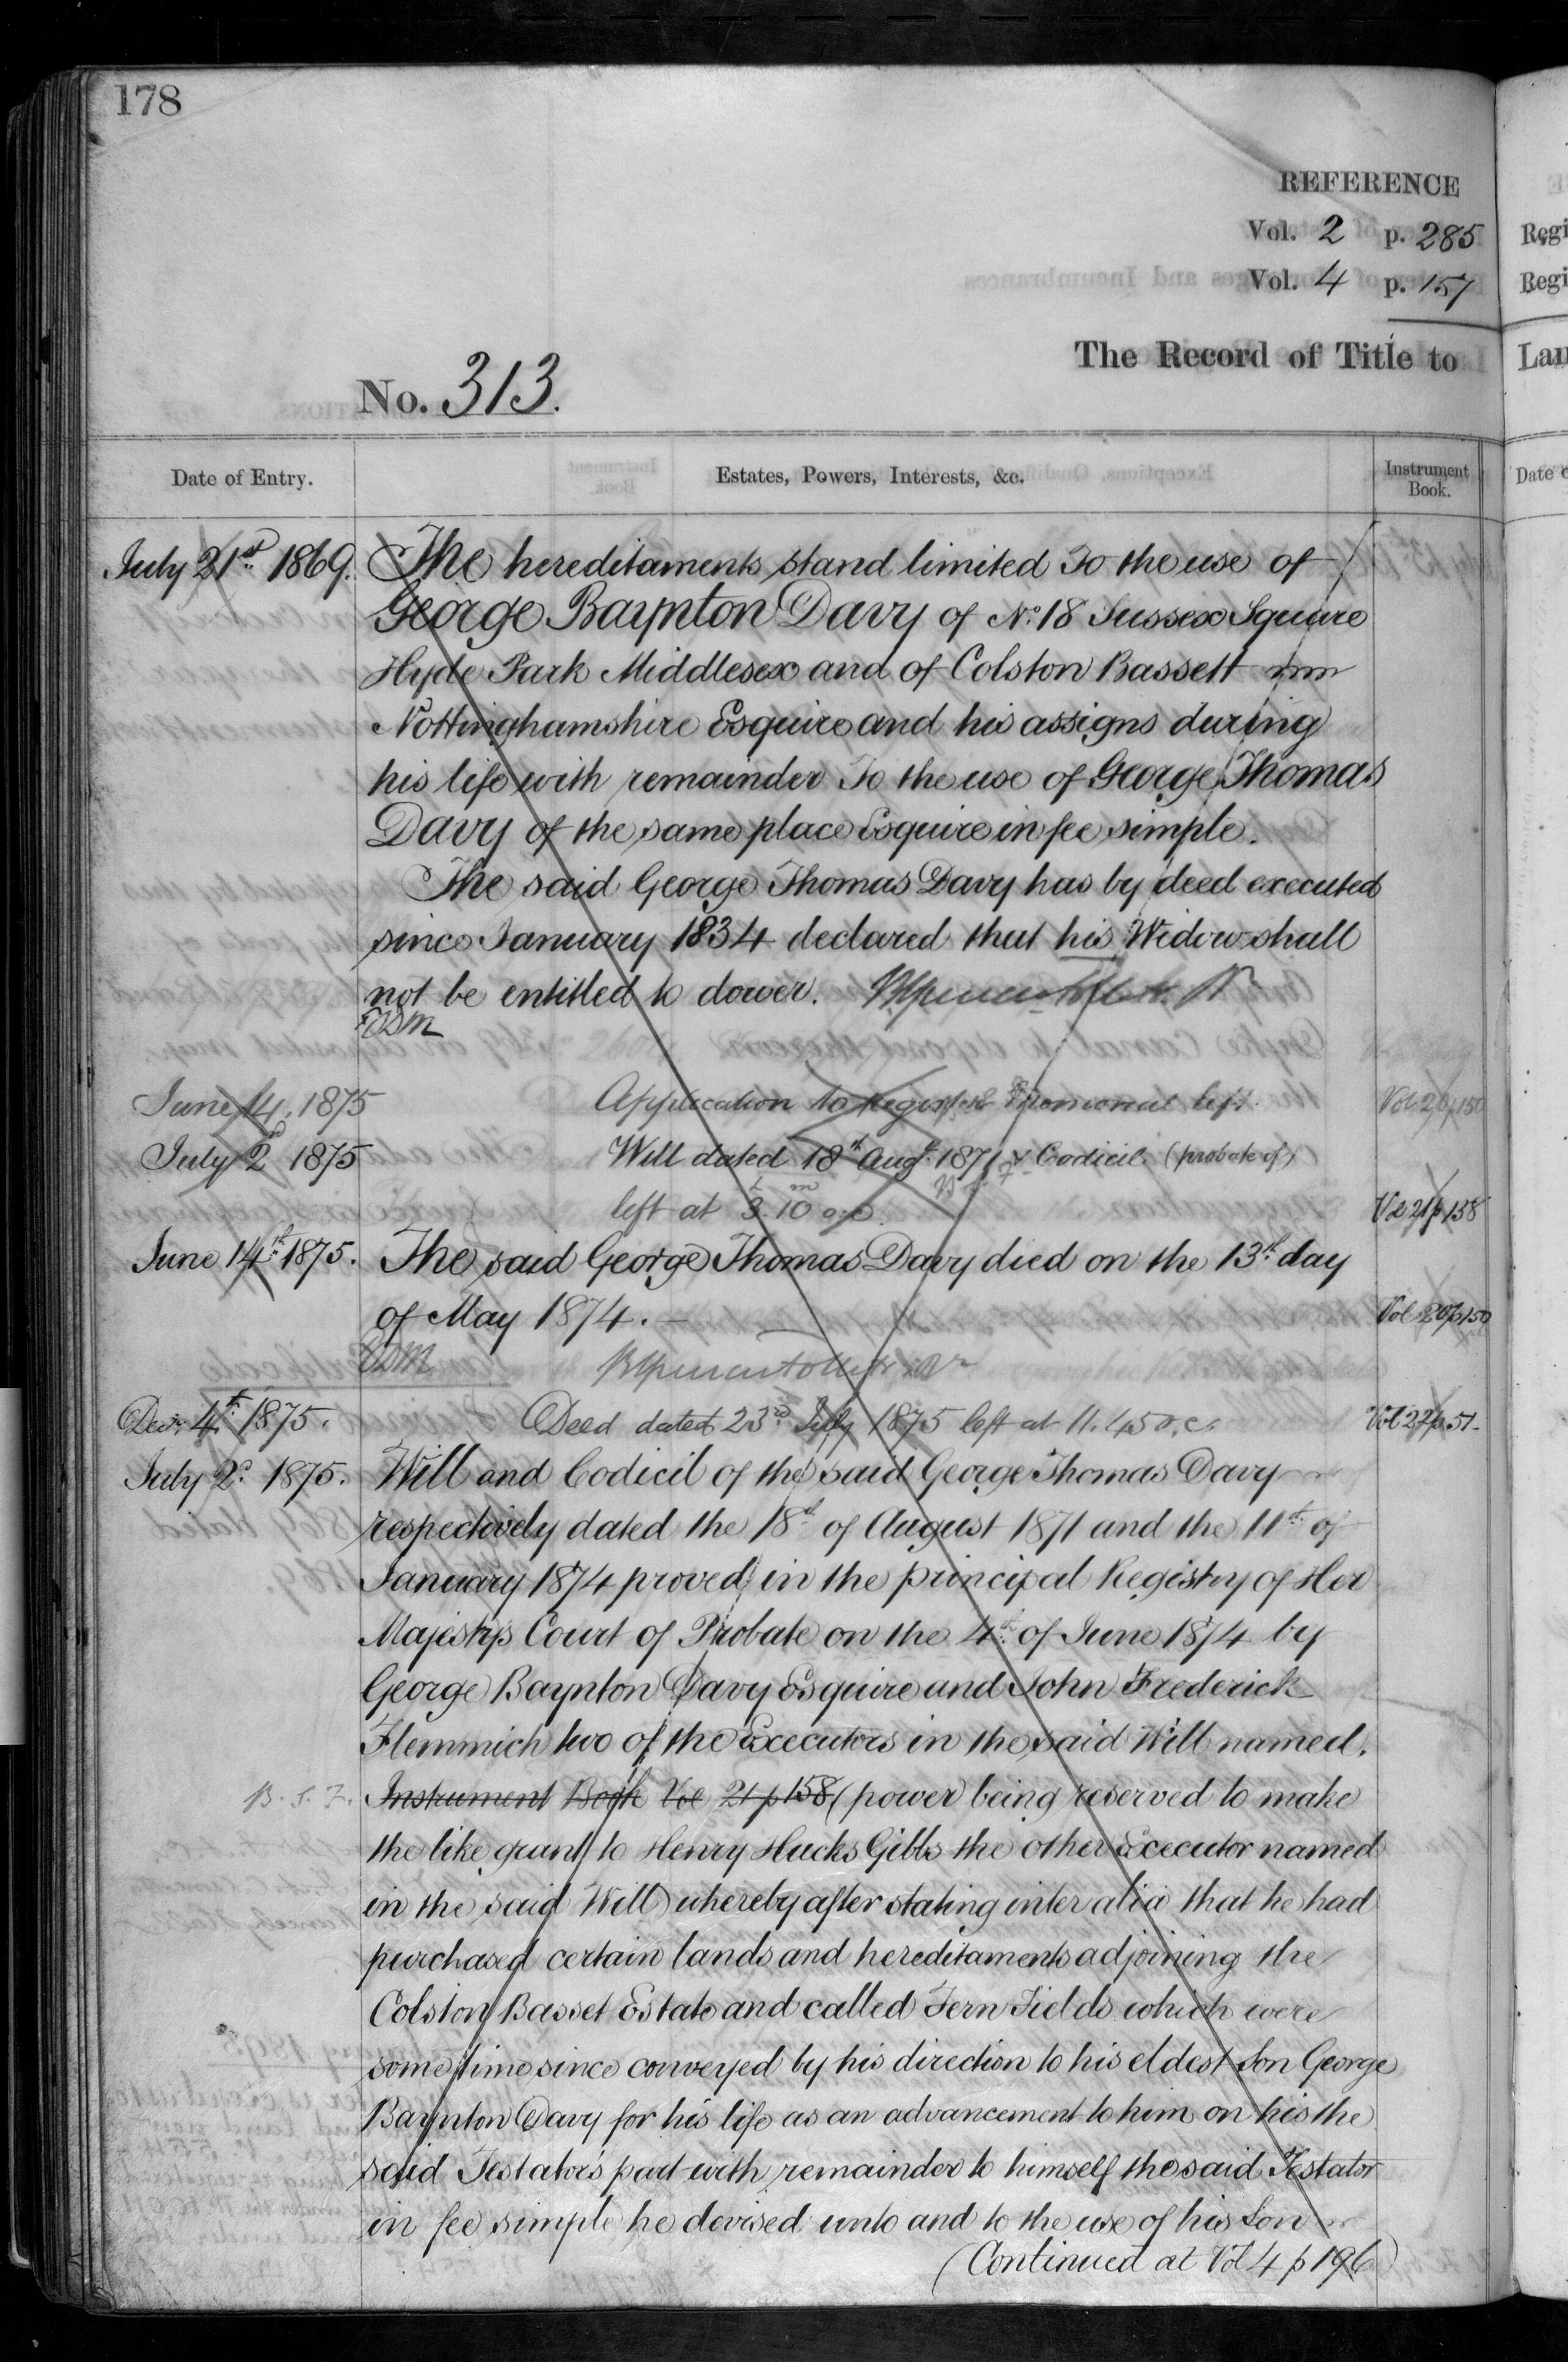 178
REFERENCE
Vol. 2 p. 285
Vol. 4 p. 157
The Record of Title to
No. 313.
Date of Entry. Estates, Powers, Interests, &c. Instrument Book.
July 21st 1869. The hereditaments stand limited To the use of
George Baynton Davy of No. 18 Sussex Square
Hyde Park Middlesex and of Colston Bassett
Nottinghamshire Esquire and his assigns during
his life with remainder To the use of George Thomas
Davy of the same place Esquire in fee simple.
The said George Thomas Davy has by deed executed
since January 1834 declared that his Widow shall
not be entitled to dower.
June 14. 1875 Application to Register Memorial left. Vol 20 p 150
July 2 1875 Will dated 18th Augt. 1871 & Codicil (probate of)
left at 3.10 Vol 21 p 158
June 14th 1875. The said George Thomas Davy died on the 13th day
of May 1874. Vol 20 p 150
Decr. 4th 1875. Deed dated 23rd July 1875 left at 11.45 Vol 22 p 51.
July 2d 1875. Will and Codicil of the said George Thomas Davy
respectively dated the 18th of August 1871 and the 11th of
January 1874 proved in the principal Registry of Her
Majesty's Court of Probate on the 4th of June 1874 by
George Baynton Davy Esquire and John Frederick
Flemmich two of the Executors in the said Will named.
Instrument Book Vol 21 p 158 (power being reserved to make
the like grant to Henry Hucks Gibbs the other Executor named
in the said Will) whereby after stating inter alia that he had
purchased certain lands and hereditaments adjoining the
Colston Basset Estate and called Fern Fields which were
some time since conveyed by his direction to his eldest Son George
Baynton Davy for his life as an advancement to him on his the
said Testator's part with remainder to himself the said Testator
in fee simple he devised unto and to the use of his Son
(Continued at Vol 4 p 196)
Regi
Regi
Lan
Date o